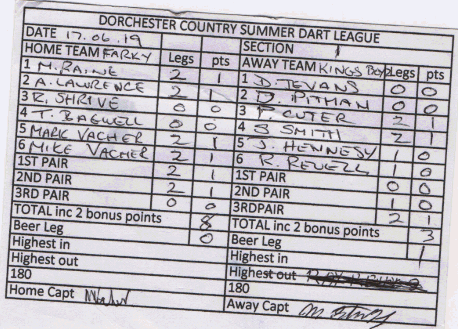 DORCHESTER COUNTRY SUMMER DART LEAGUE
DATE 17.06.19 SECTION 1
HOME TEAM FARKY Legs pts AWAY TEAM KINGS Legs pts
1 M. RAINE 2 1 1 D. JEVANS 0 0
2 A. LAWRENCE 2 1 2 D. PITMAN 0 0
3 R. SHRIVE 0 0 3 P. CUTER 2 1
4 T. BAGWELL 0 0 4 S SMITH 2 1
5 MARK VACHER 2 1 5 J. HENNESY 1 0
6 MIKE VACHER 2 1 6 R. REVELL 1 0
1ST PAIR 2 1 1ST PAIR 0 0
2ND PAIR 2 1 2ND PAIR 1 0
3RD PAIR 0 0 3RDPAIR 2 1
TOTAL inc 2 bonus points 8 TOTAL inc 2 bonus points 3
Beer Leg 0 Beer Leg 1
Highest in Highest in
Highest out Highest out
180 180
Home Capt Away Capt